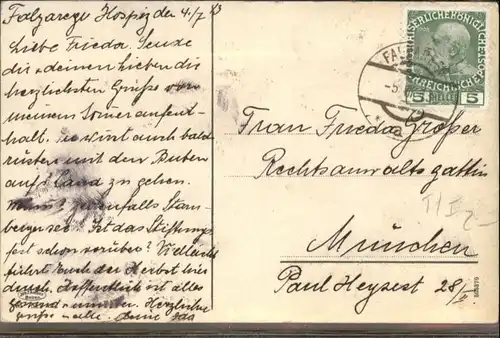 Falzarego Hospiz den 4./7. 13
Liebe Frieda. Sende
dir u. deinen Lieben die
herzlichsten Grüsse von
meinem Sommeraufent-
halt. Du wirst auch bald
rüsten mit den Buben
aufs Land zu gehen.
jedenfalls Starn-
bergersee? Ist das Stiftungs
fest schon vorüber? Vielleicht
führt Euch der Herbst hier
durch. Hoffentlich ist alles
gesund u. munter. Herzliche
Grüsse alle. deine Ida
KAISERLICHE KÖNIGLICHE
ÖSTERREICHISCHE
5 5
FAL
-5
Frau Frieda Großer
Rechtsanwaltsgattin
München
Paul Heysest 28/II